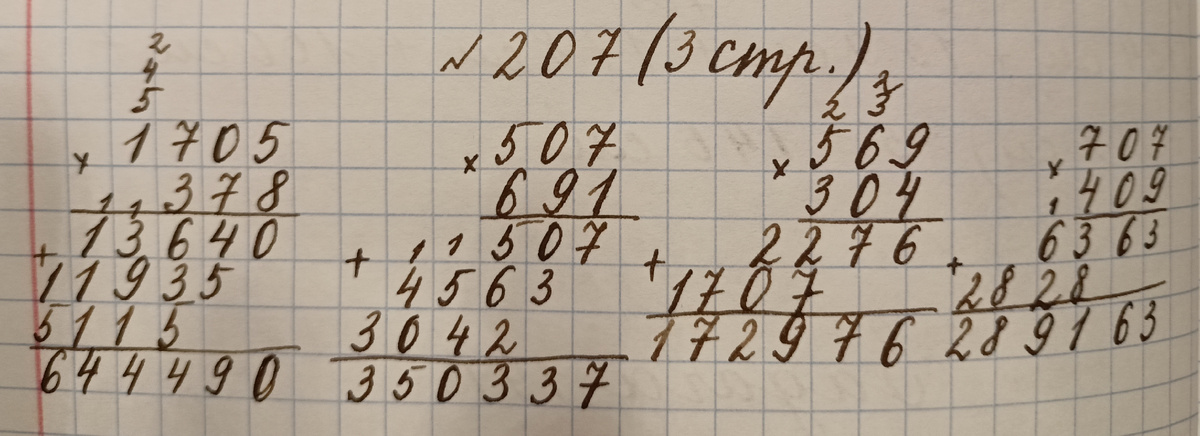 № 207 (3 стр.)
2
4
5
1705
× 378
1 1
13640
+ 11935
5115
644490
507
× 691
1 1 507
+ 4563
3042
350337
2 3
569
× 304
2276
+ 1707
172976
707
× 409
1
6363
+ 2828
289163